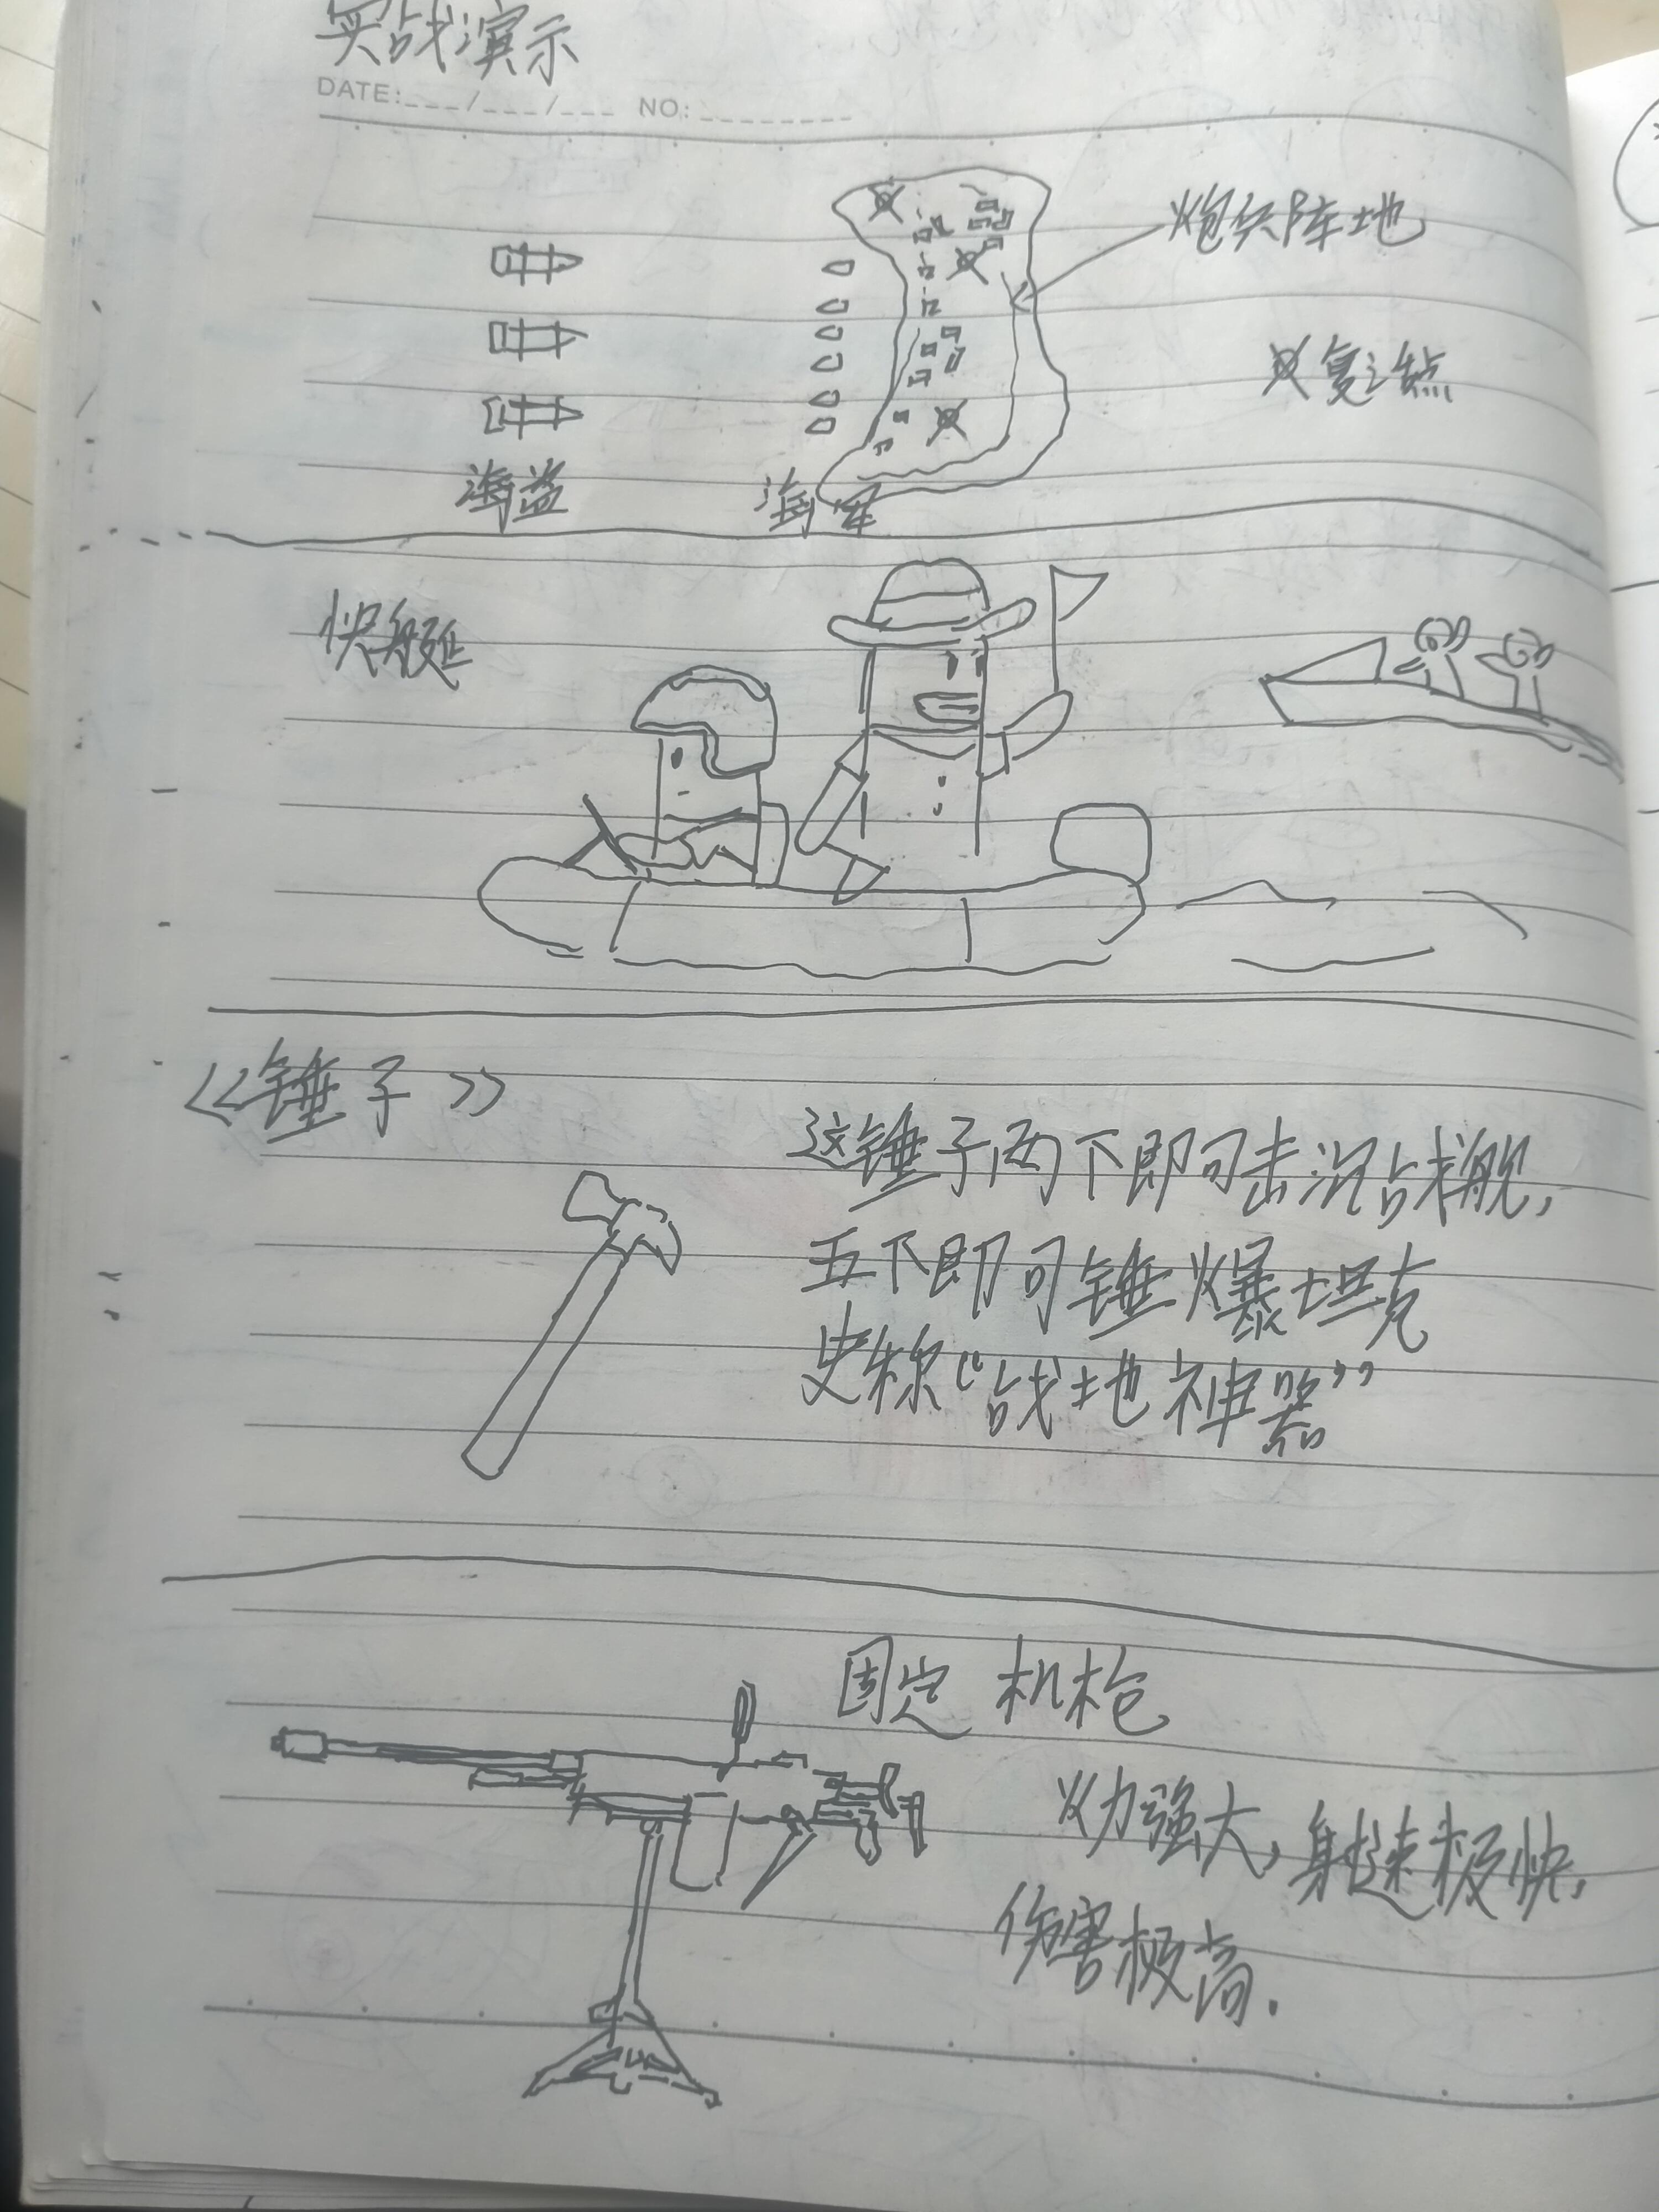 实战演示
DATE:___/___/___ NO:________
炮兵阵地
复活点
海盗
海军
快艇
<<锤子>>
这锤子两下即可击沉战舰,
五下即可锤爆坦克
史称“战地神器”
固定 机枪
火力强大,射速极快,
伤害极高.